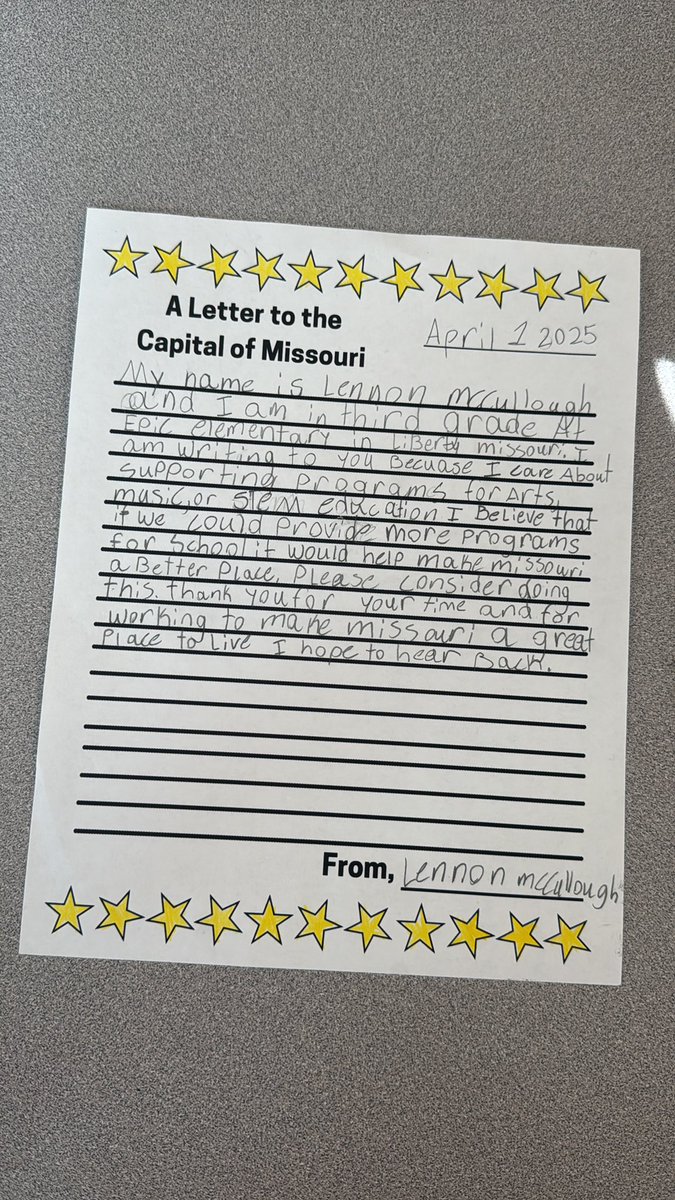 A Letter to the
Capital of Missouri
April 1 2025
My name is Lennon mcCullough
and I am in third grade At
Epic elementary in LiBerty missouri. I
am writing to you Becuase I care About
supporting programs for Arts,
music, or Stem education I Believe that
if we could Provide more Programs
for School it would help make missouri
a Better Place. Please consider doing
this. thank you for your time and for
working to make missouri a great
Place to Live I hope to hear Back.
From, Lennon mcCullough